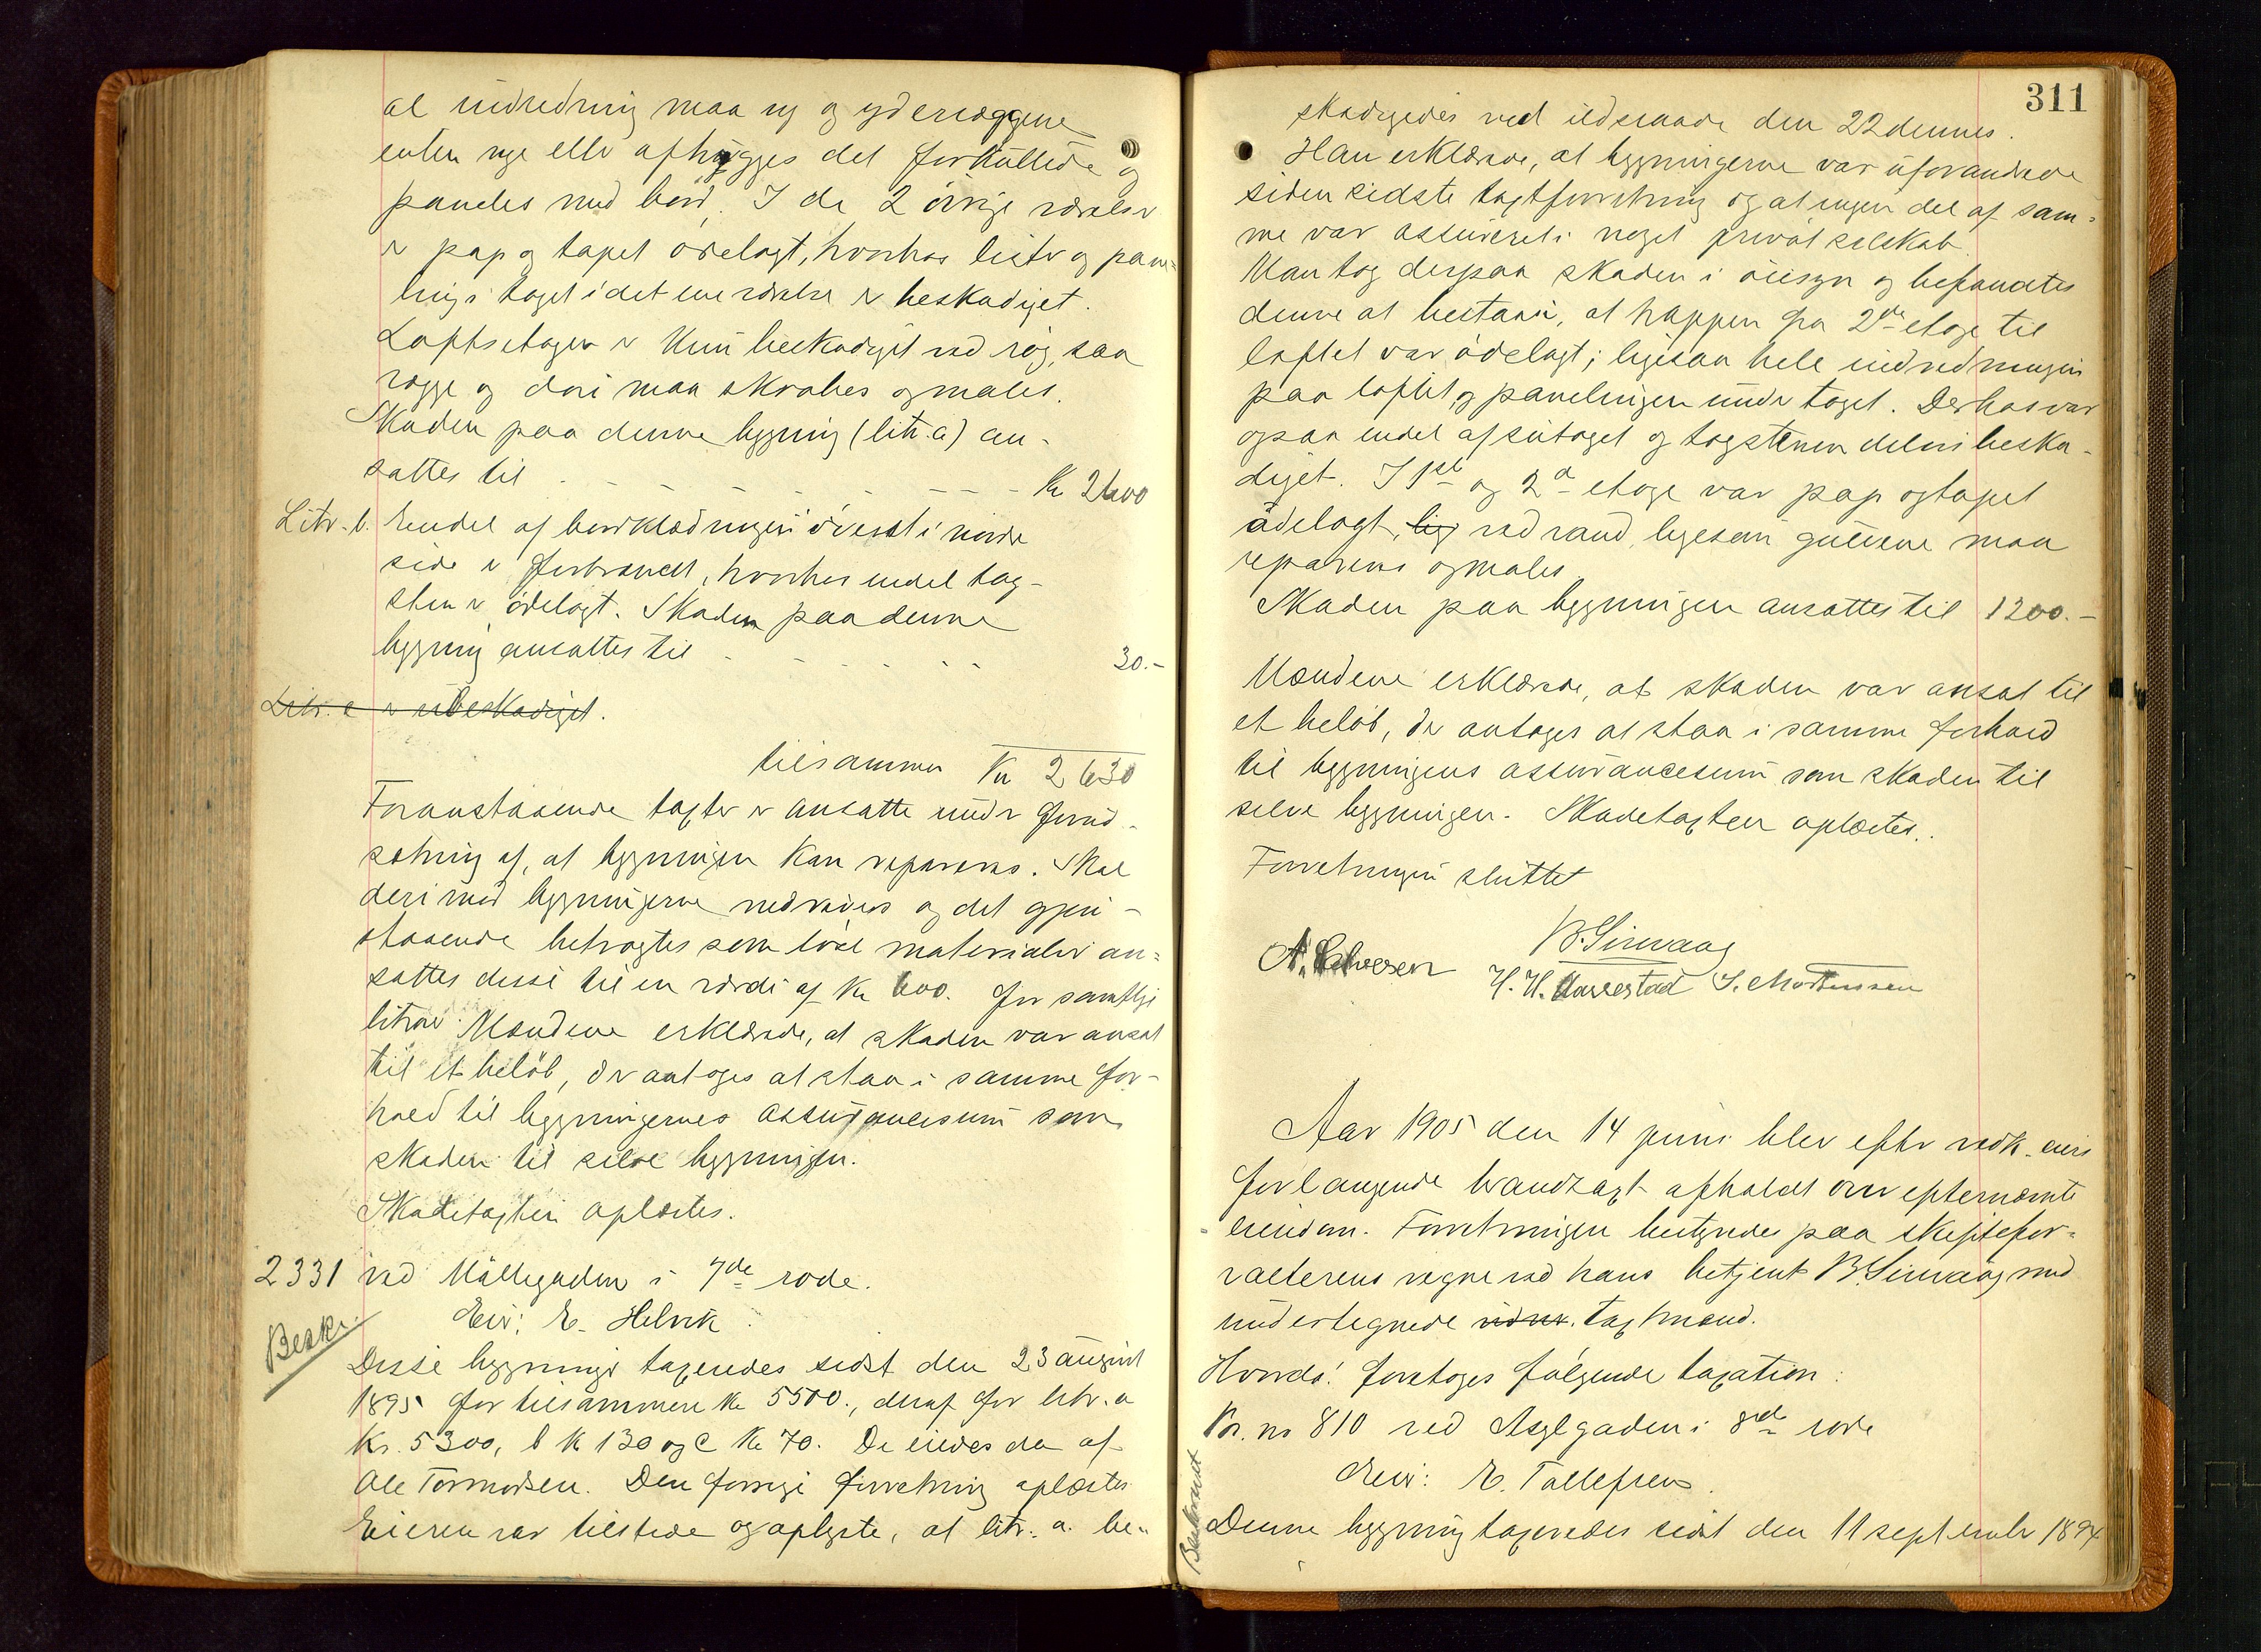 al indredning maa ny og ydervæggene
enten nye eller afhugges det forkullede og
paneles med bord. I de 2 øvrige værelser
er pap og tapet ødelagt, hvorhos lister og pane-
ling i taget i det ene værelse er beskadiget.
Loftsetagen er kun beskadiget ved røg, saa
vægge og døre maa skrabes og males.
Skaden paa denne bygning (litr. a) an-
sattes til - - - - - - - Kr 2600
Litr. b. Endel af bordklædningen øverst i nordre
side er forbrændt, hvorhos endel tag-
sten er ødelagt. Skaden paa denne
bygning ansattes til - - - - - - 30.-
Litr. c er ubeskadiget.
tilsammen Kr 2630
Foranstaaende taxter er ansatte under forud-
sætning af, at bygningen kan repareres. Skal
derimod bygningerne nedrives og det gjen-
staaende betragtes som løse materialier an-
sattes disse til en værdi af Kr 600. for samtlige
litraer. Mændene erklærede, at skaden var ansat
til et beløb, der antoges at staa i samme for-
hold til bygningernes assurancesum som
skaden til selve bygningen.
Skadetaxten oplæstes.
2331 ved Møllegaden i 7de rode.
Eier: E. Helvik
Beskr.
Disse bygninger taxeredes sidst den 23 august
1895 for tilsammen Kr 5500., deraf for litr. a
Kr. 5300, b Kr 130 og c Kr 70. De eiedes da af
Ole Tormodsen. Den forrige forretning oplæstes
Eieren var tilstede og oplyste, at litr. a. be-
311
skadigedes ved ildsvaade den 22 dennes.
Han erklærede, at bygningerne var uforandrede
siden sidste taxtforretning og at ingen del af sam-
me var assureret i noget privat selskab.
Man tog derpaa skaden i øiesyn og befandtes
denne at bestaa i, at trappen fra 2den etage til
loftet var ødelagt; ligesaa hele indredningen
paa loftet og panelingen under taget. Derhos var
ogsaa endel af sutaget og tagstenen delvis beska-
diget. I 1ste og 2d etage var pap og tapet
ødelagt, lig ved vand, ligesom gulvene maa
repareres og males.
Skaden paa bygningen ansattes til 1200.-
Mændene erklærede, at skaden var ansat til
et beløb, der antoges at staa i samme forhold
til bygningens assurancesum som skaden til
selve bygningen. Skadetaxten oplæstes.
Forretningen sluttet
B. Sirevaag
A. H. H. Haarestad S. Mortensen
Aar 1905 den 14 juni blev efter vedk. eiers
forlangende brandtaxt afholdt over efternævnte
eiendom. Forretningen bestyredes paa skiftefor-
valterens vegne ved hans betjent B. Sirevaag med
undertegnede vidner. taxtmænd.
Hvorda foretoges følgende taxation:
Br. no 810 ved Asylgaden i 8de rode
Eier: E. Tollefsen.
Beskrevet
Denne bygning taxeredes sidst den 11 september 1894